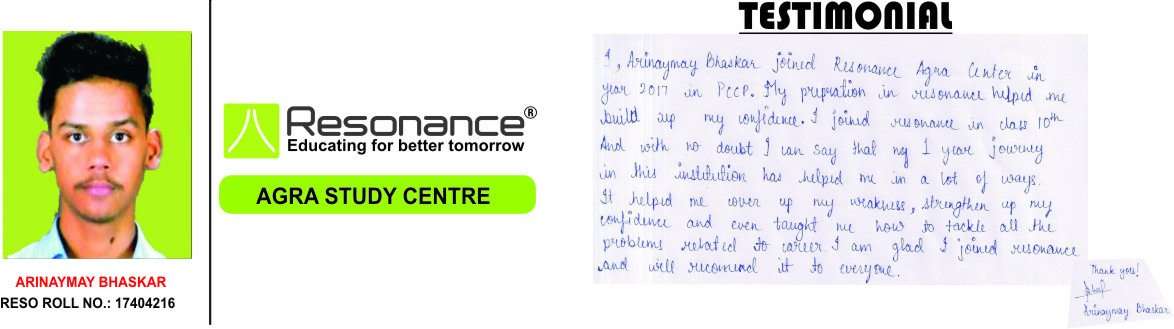 ARINAYMAY BHASKAR
RESO ROLL NO.: 17404216
Resonance®
Educating for better tomorrow
AGRA STUDY CENTRE
TESTIMONIAL
I, Arinaymay Bhaskar joined Resonance Agra Center in
year 2017 in PCCP. My prepration in resonance helped me
build up my confidence. I joined resonance in class 10th
And with no doubt I can say that my 1 year journey
in this institution has helped me in a lot of ways.
It helped me cover up my weakness, strengthen up my
confidence and even taught me how to tackle all the
problems related to career. I am glad I joined resonance
and will recomend it to everyone.
Thank you!
Arinaymay Bhaskar